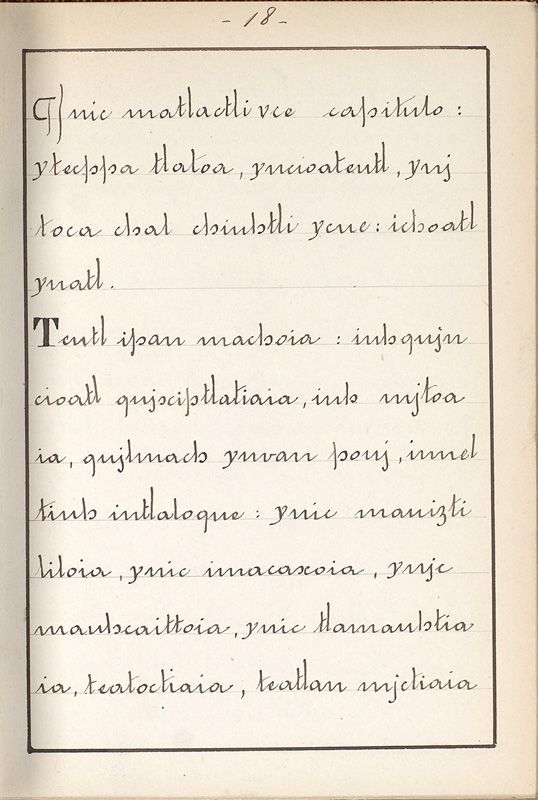 - 18 -
¶ Inic matlactli vce capitulo :
ytecħppa tlatoa, yncioateutl, ynj
toca chal chiuhtli ycue : ichoatl
ynatl.
Teutl ipan machoia : iuhqujn
cioatl qujxiptlatiaia, iuh mjtoa
ia, qujlmach ynvan pouj, innel
tiuh intlaloque : ynic mauizti
liloia, ynic imacaxoia, ynjc
mauhcaittoia, ynic tlamauhtia
ia, teatoctiaia, teatlan mjctiaia